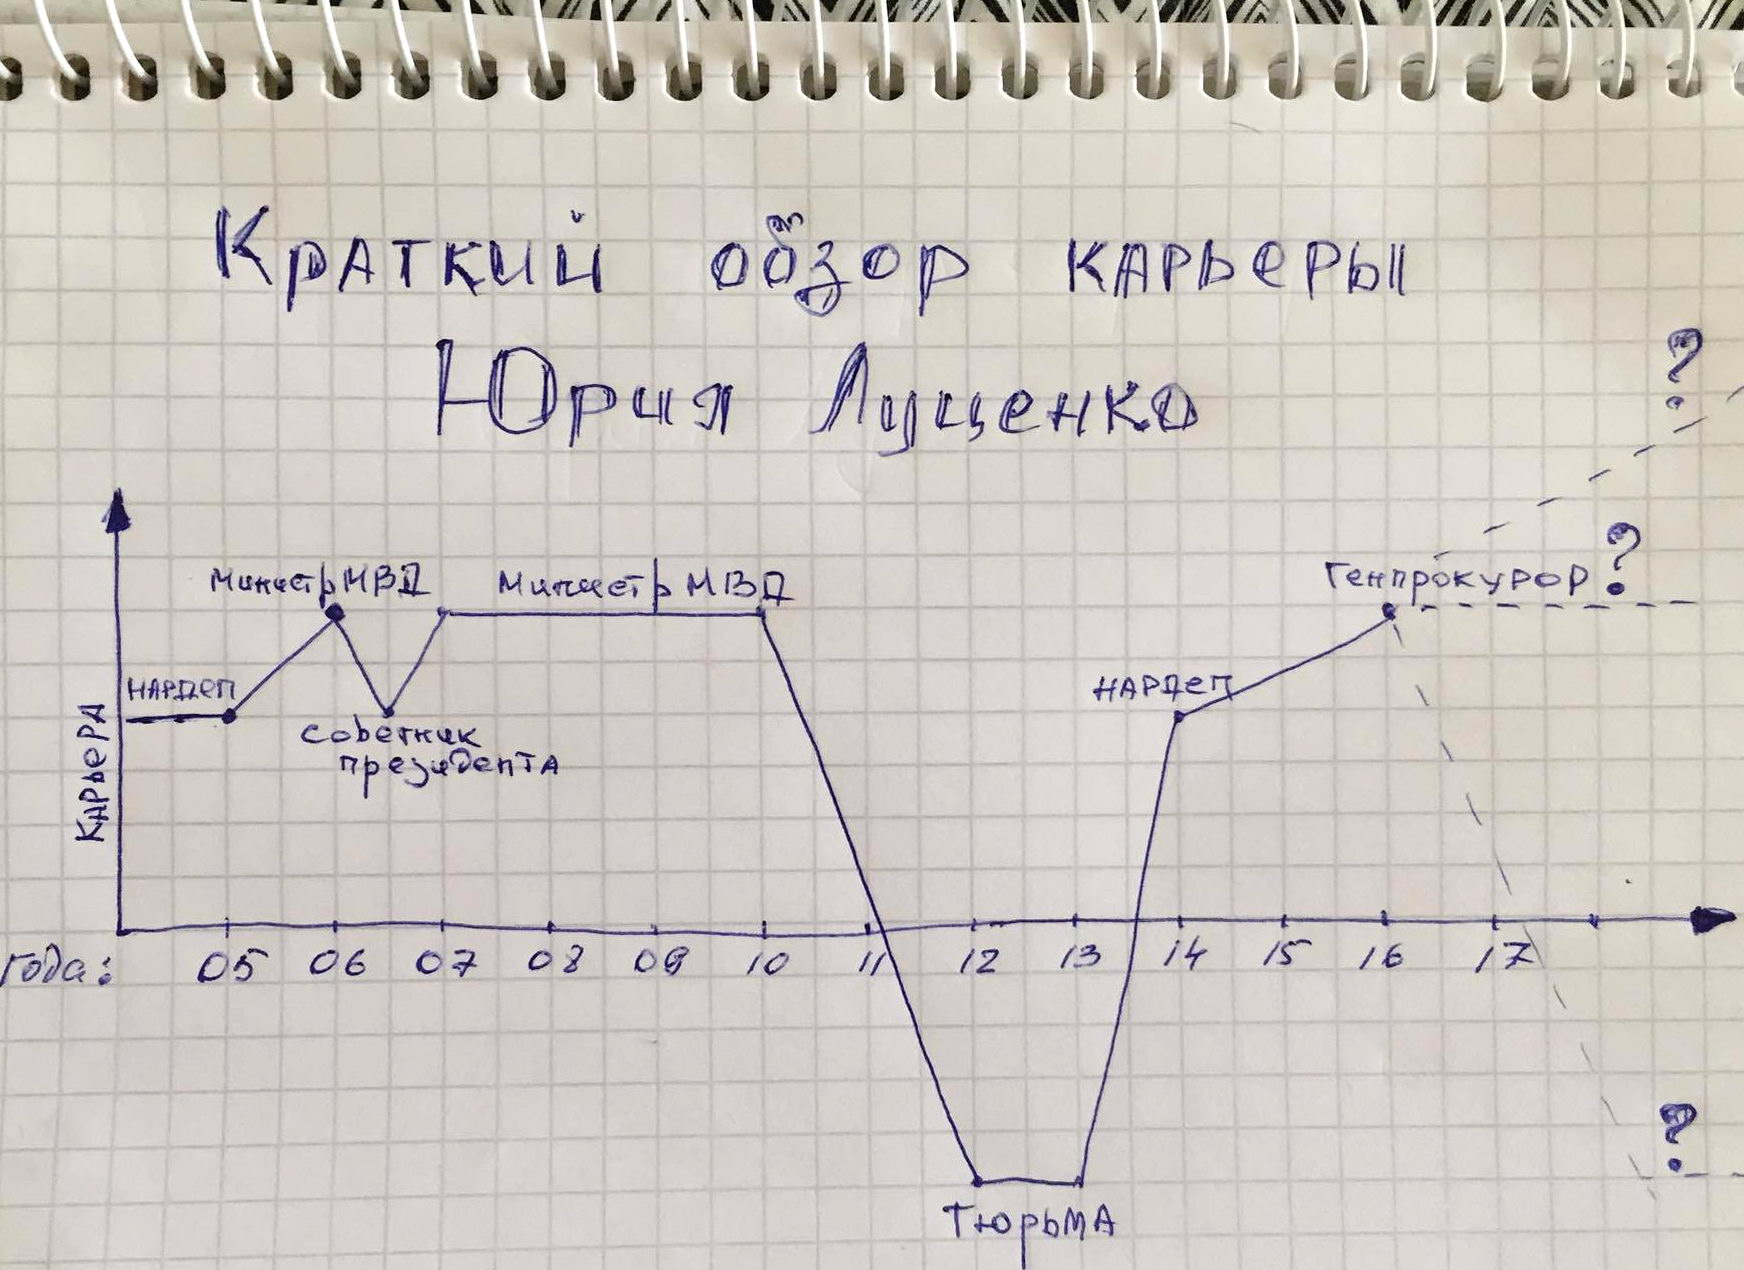 Краткий обзор карьеры
Юрия Луценко
?
?
Министр МВД
Министр МВД
Генпрокурор
НАРДЕП
НАРДЕП
Советник
президента
Карьера
года:
05 06 07 08 09 10 11 12 13 14 15 16 17
?
Тюрьма